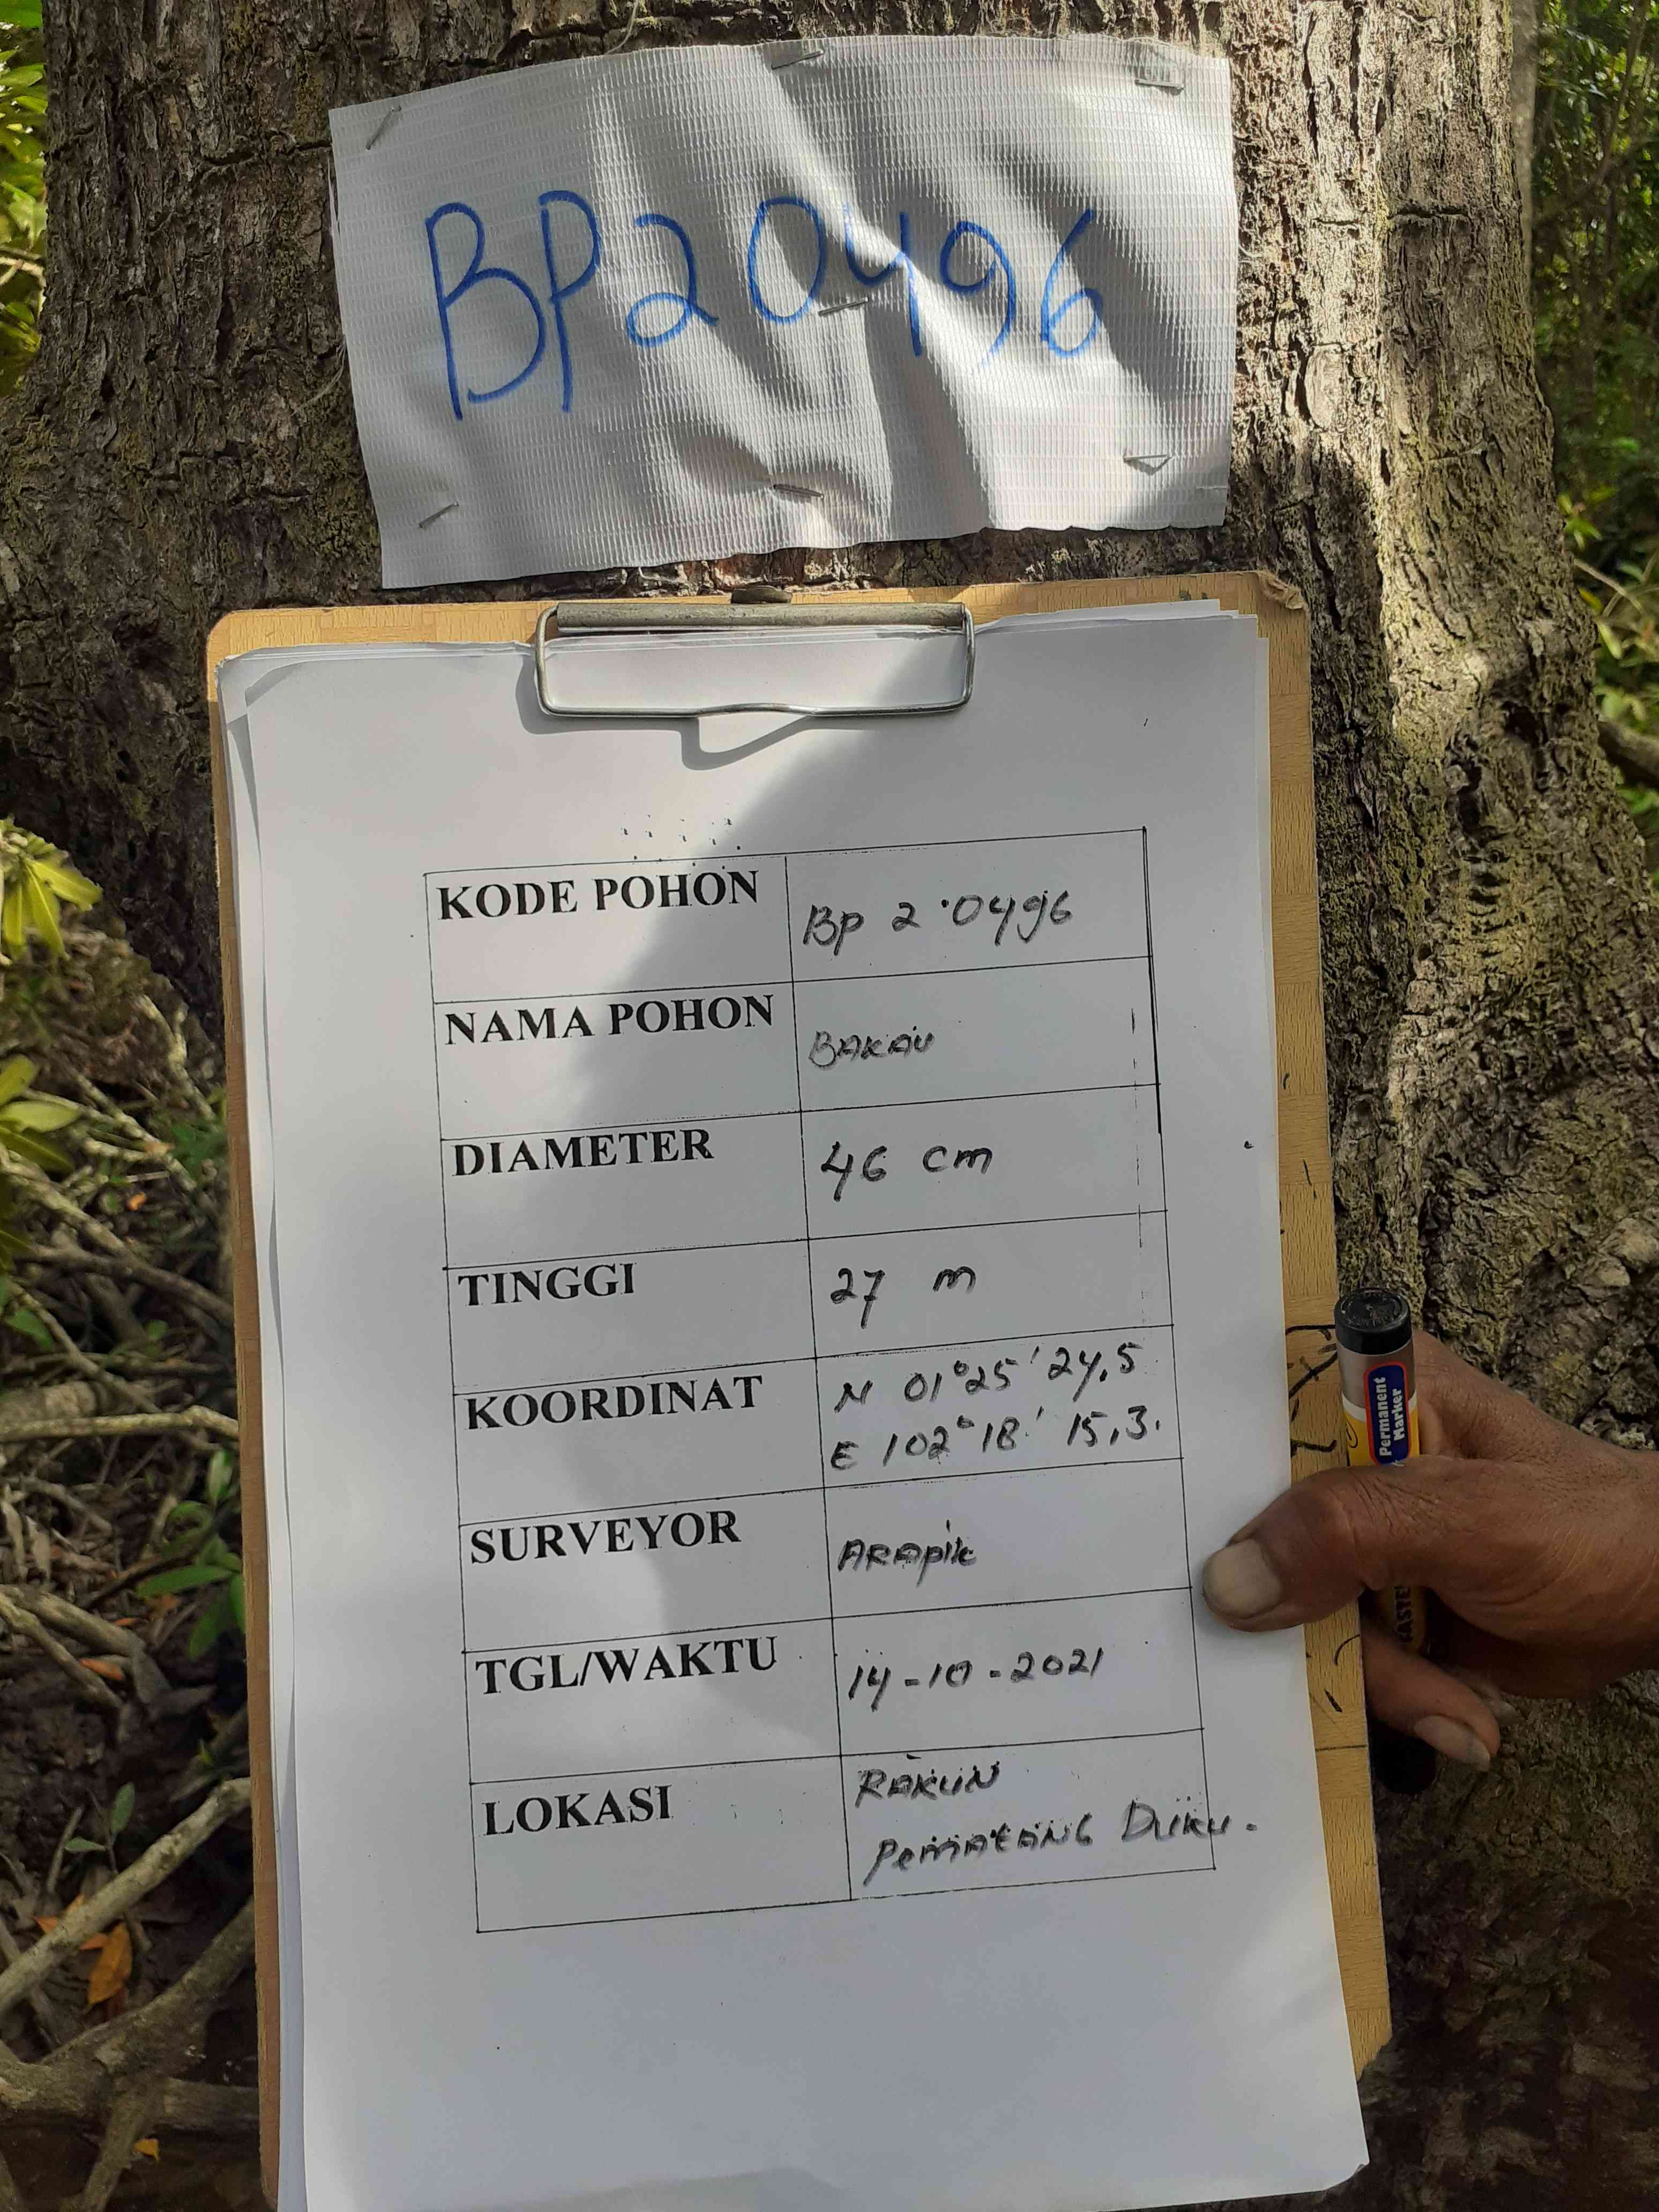 BP20496
KODE POHON
Bp 2.0496
NAMA POHON
BAKAU
DIAMETER
46 cm
TINGGI
27 m
KOORDINAT
N 01°25' 24,5
E 102°18' 15,3.
SURVEYOR
ARApik
TGL/WAKTU
14-10-2021
LOKASI
RAKUN
PEMATANG DUKU.
Permanent
Marker